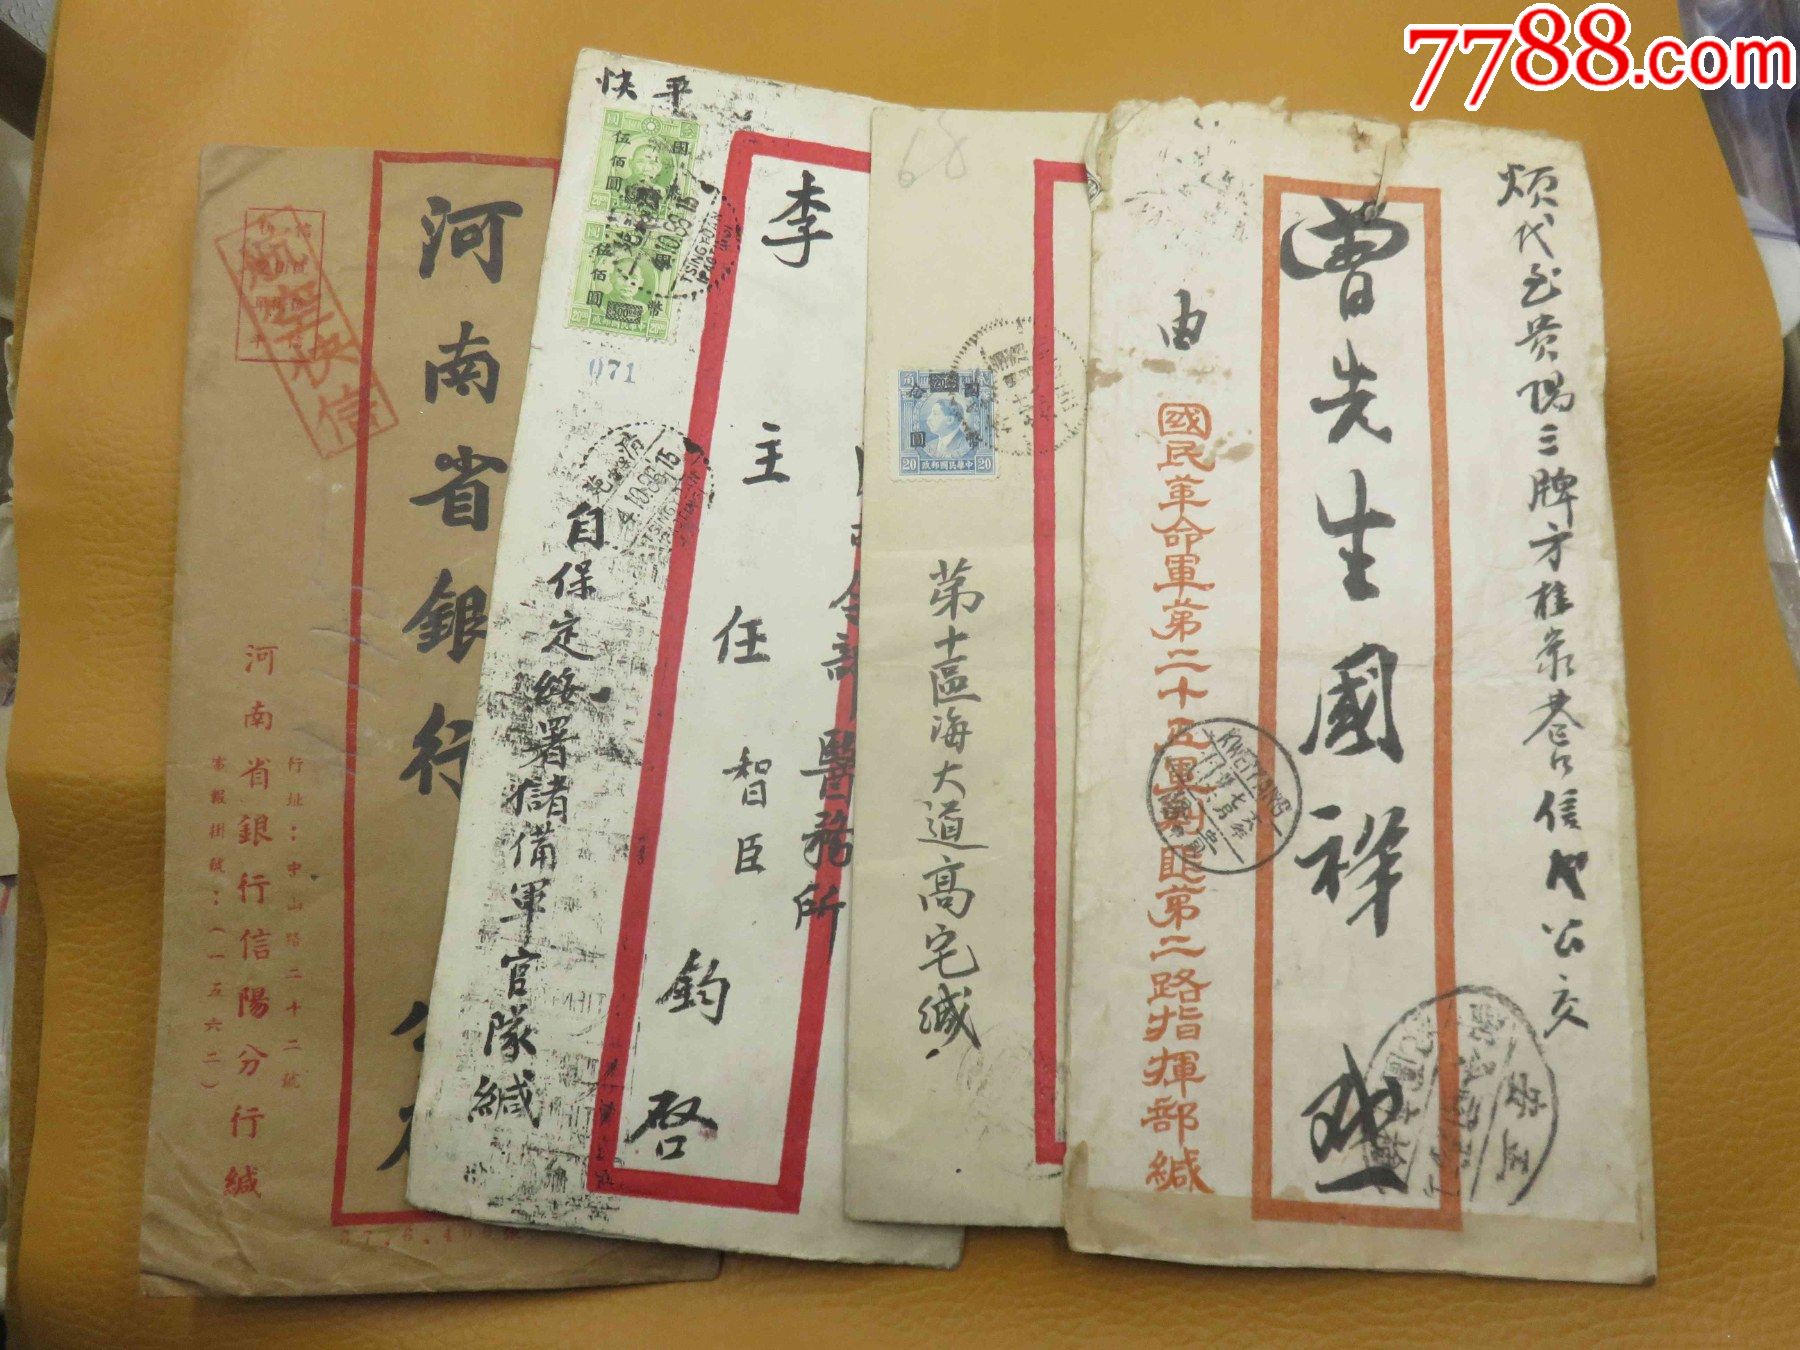 7788.com
煩代至貴陽三牌方桂泉巷
曹先生國祥
由
國民革命軍第二十五軍剿匪第二路指揮部緘
KWEIYANG
68
20 中華民國郵政 20
第十區海大道高宅緘
快平
伍佰圓
伍佰圓
20 中華民國郵政 20
071
李主任智臣鈞啓
醫務所
自保定綏署儲備軍官隊緘
4.10.86.15
航空快信
河南省銀行
行址：中山路二十二號
河南省銀行信陽分行緘
電報掛號：（一五六二）